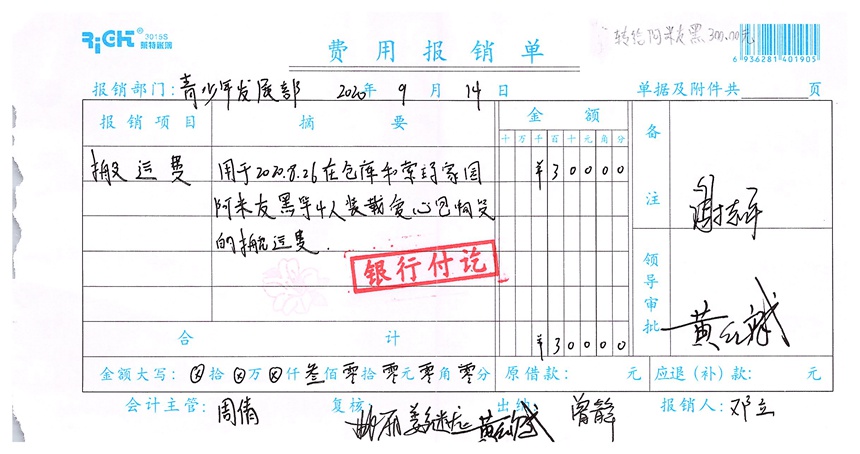 RiCH 3015S
莱特账簿
费用报销单
转给阿米友黑300.00元
6 936281 401905
报销部门: 青少年发展部 2020年 9月 14日 单据及附件共 页
报销项目 摘要 金额 备注
十 万 千 百 十 元 角 分
搬运费 用于2020.8.26在仓库和
阿米友黑等4人装载爱心包
的搬运费.
¥30000
银行付讫
领导审批
合计 ¥30000
金额大写: ⊗拾⊗万⊗仟叁佰零拾零元零角零分 原借款: 元 应退(补)款: 元
会计主管: 周倩 复核: 出纳: 曾静 报销人: 邓立